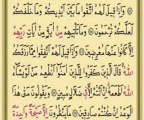 وَإِذَا قِيلَ لَهُمُ ٱتَّقُوا۟ مَا بَيْنَ أَيْدِيكُمْ وَمَا خَلْفَكُمْ
لَعَلَّكُمْ تُرْحَمُونَ وَمَا تَأْتِيهِم مِّنْ ءَايَةٍ مِّنْ ءَايَٰتِ رَبِّهِمْ
إِلَّا كَانُوا۟ عَنْهَا مُعْرِضِينَ وَإِذَا قِيلَ لَهُمْ أَنفِقُوا۟ مِمَّا رَزَقَكُمُ
ٱللَّهُ قَالَ ٱلَّذِينَ كَفَرُوا۟ لِلَّذِينَ ءَامَنُوٓا۟ أَنُطْعِمُ مَن لَّوْ يَشَآءُ
ٱللَّهُ أَطْعَمَهُۥٓ إِنْ أَنتُمْ إِلَّا فِى ضَلَٰلٍ مُّبِينٍ وَيَقُولُونَ مَتَىٰ هَٰذَا
ٱلْوَعْدُ إِن كُنتُمْ صَٰدِقِينَ مَا يَنظُرُونَ إِلَّا صَيْحَةً وَٰحِدَةً